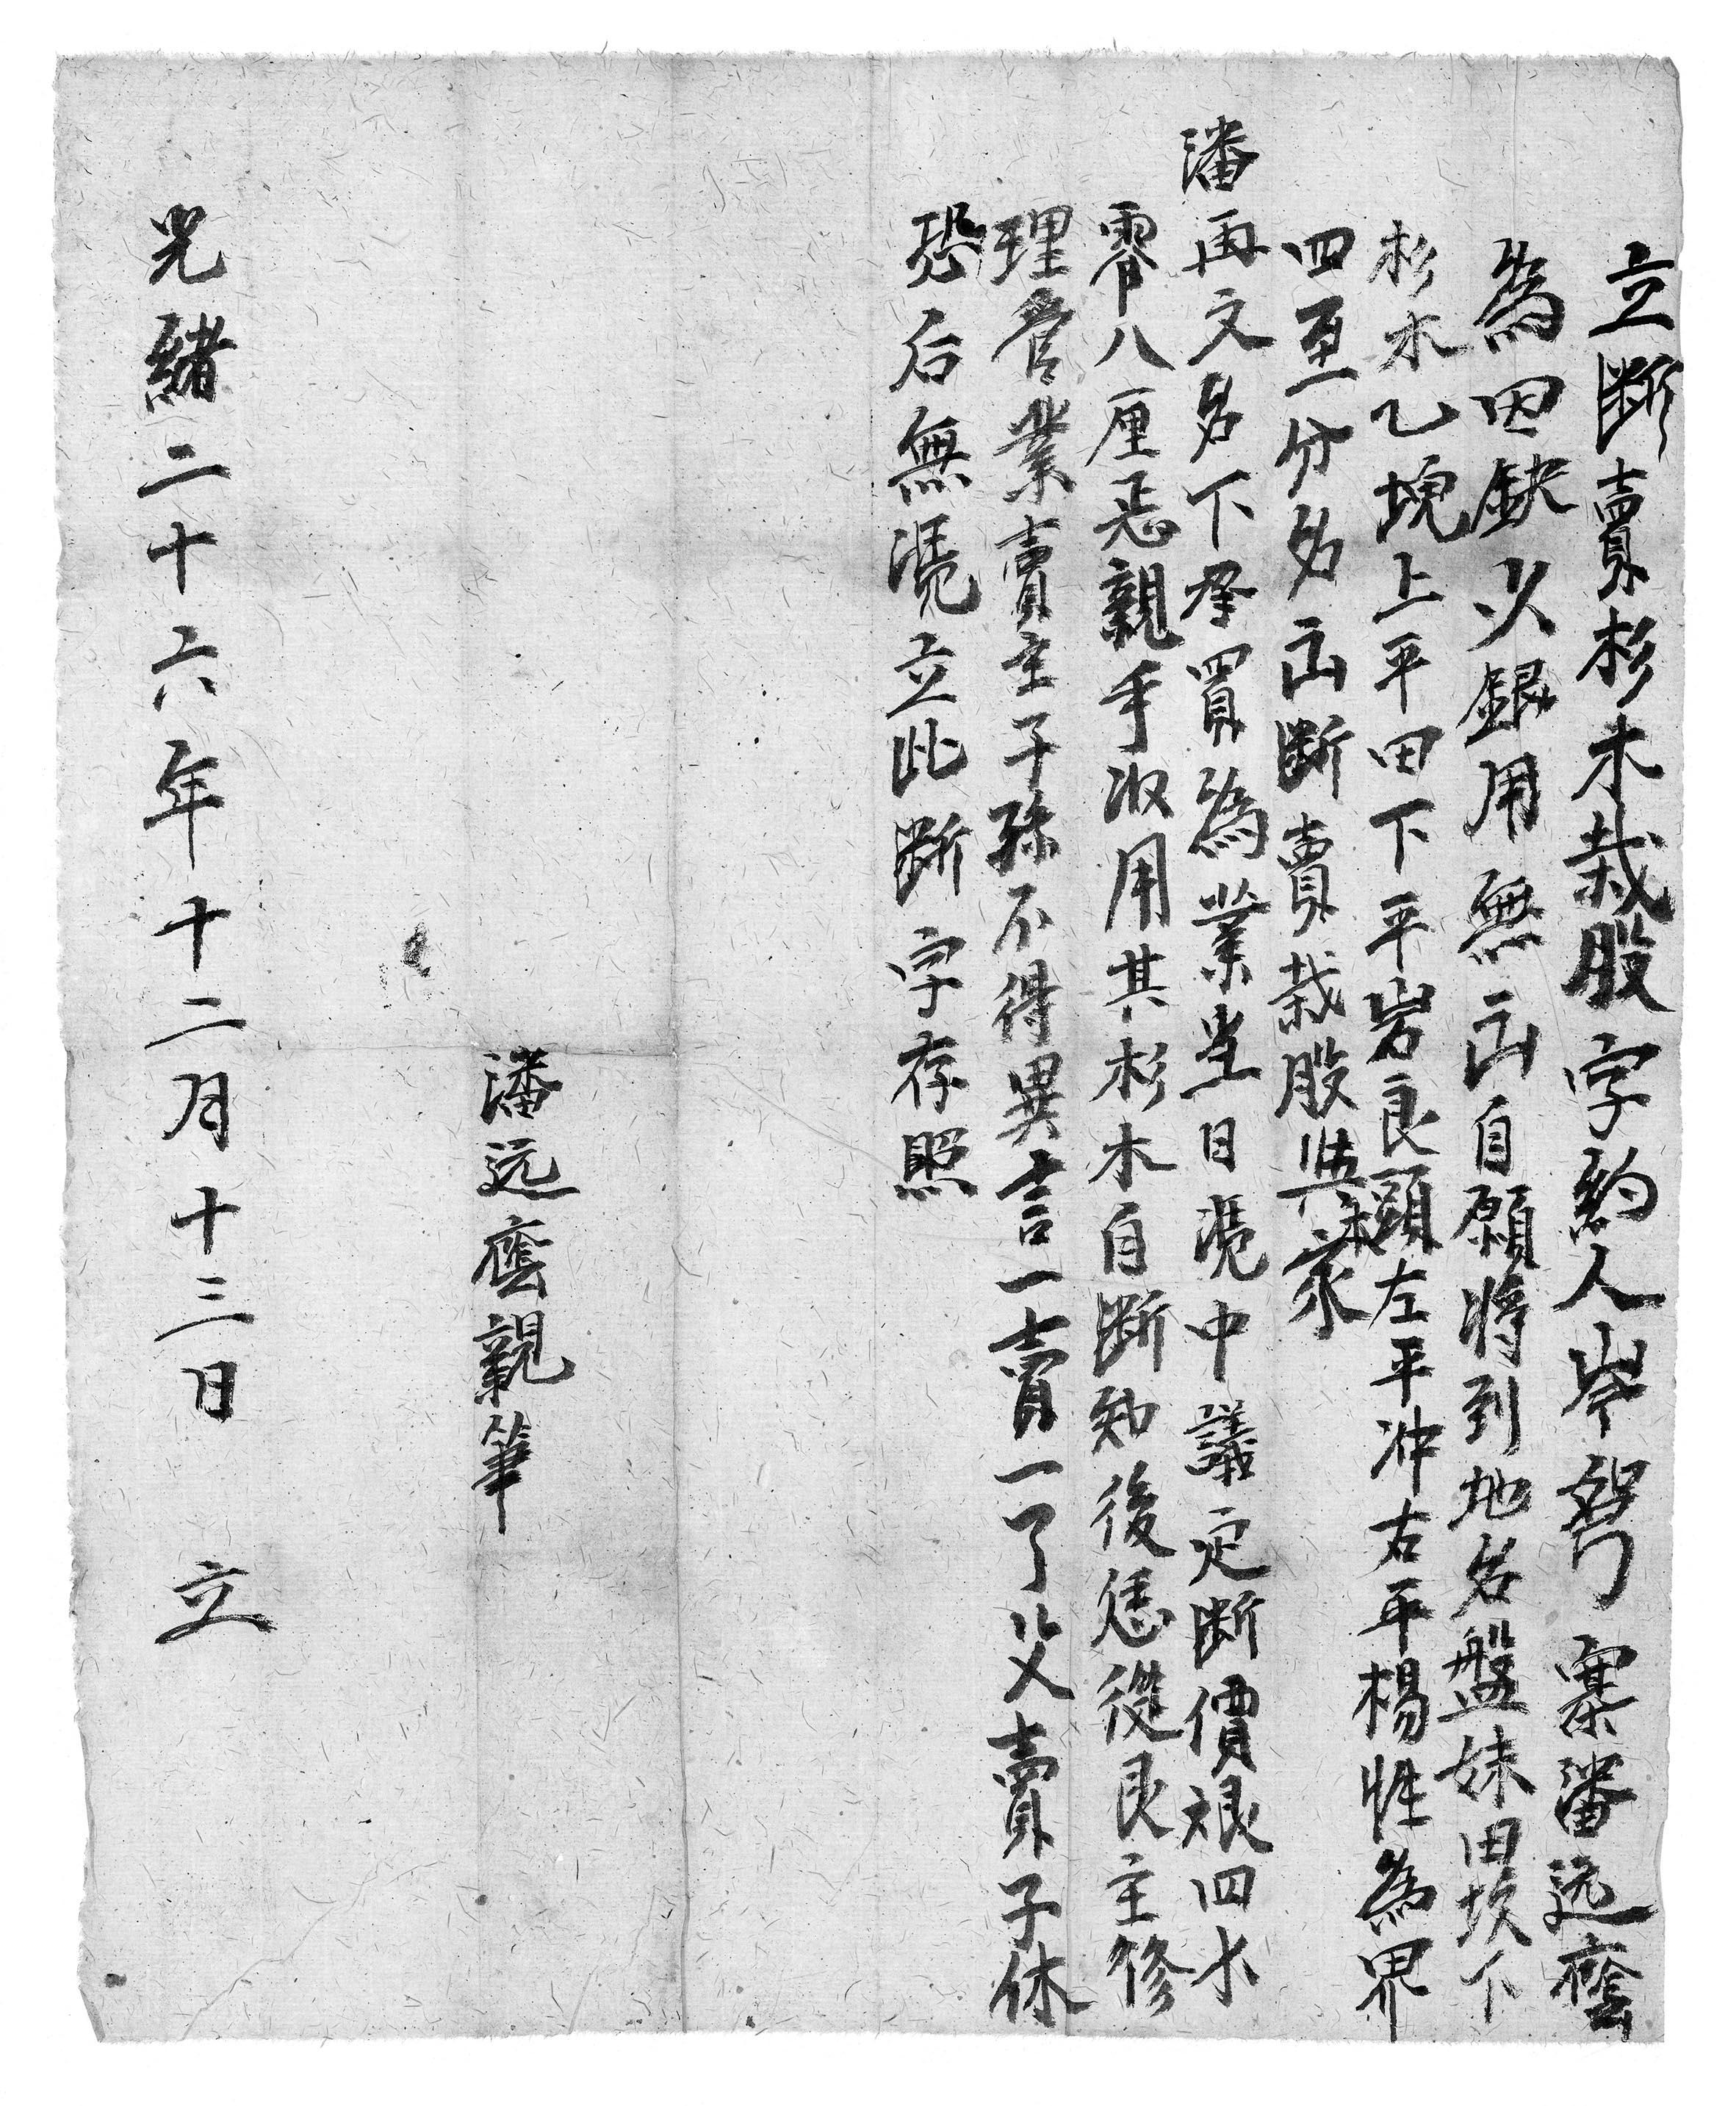 立断賣杉木栽股字約人岑孖寨潘远𢊬
為因缺少銀用無出自願将到地名盤妹田坎下
杉木乙塊上平田下平岩良顕左平冲右平楊姓為界
四至一分名出断賣栽股與本家
潘再文名下承買為業當日凴中議定断價艮四水
零八厘忑親手収用其杉木自断知後慿從艮主修
理管業賣主子孫不得異言一賣一了父賣子休
恐后無凴立此断字存照
潘远𢊬親筆
光緒二十六年十二月十三日 立